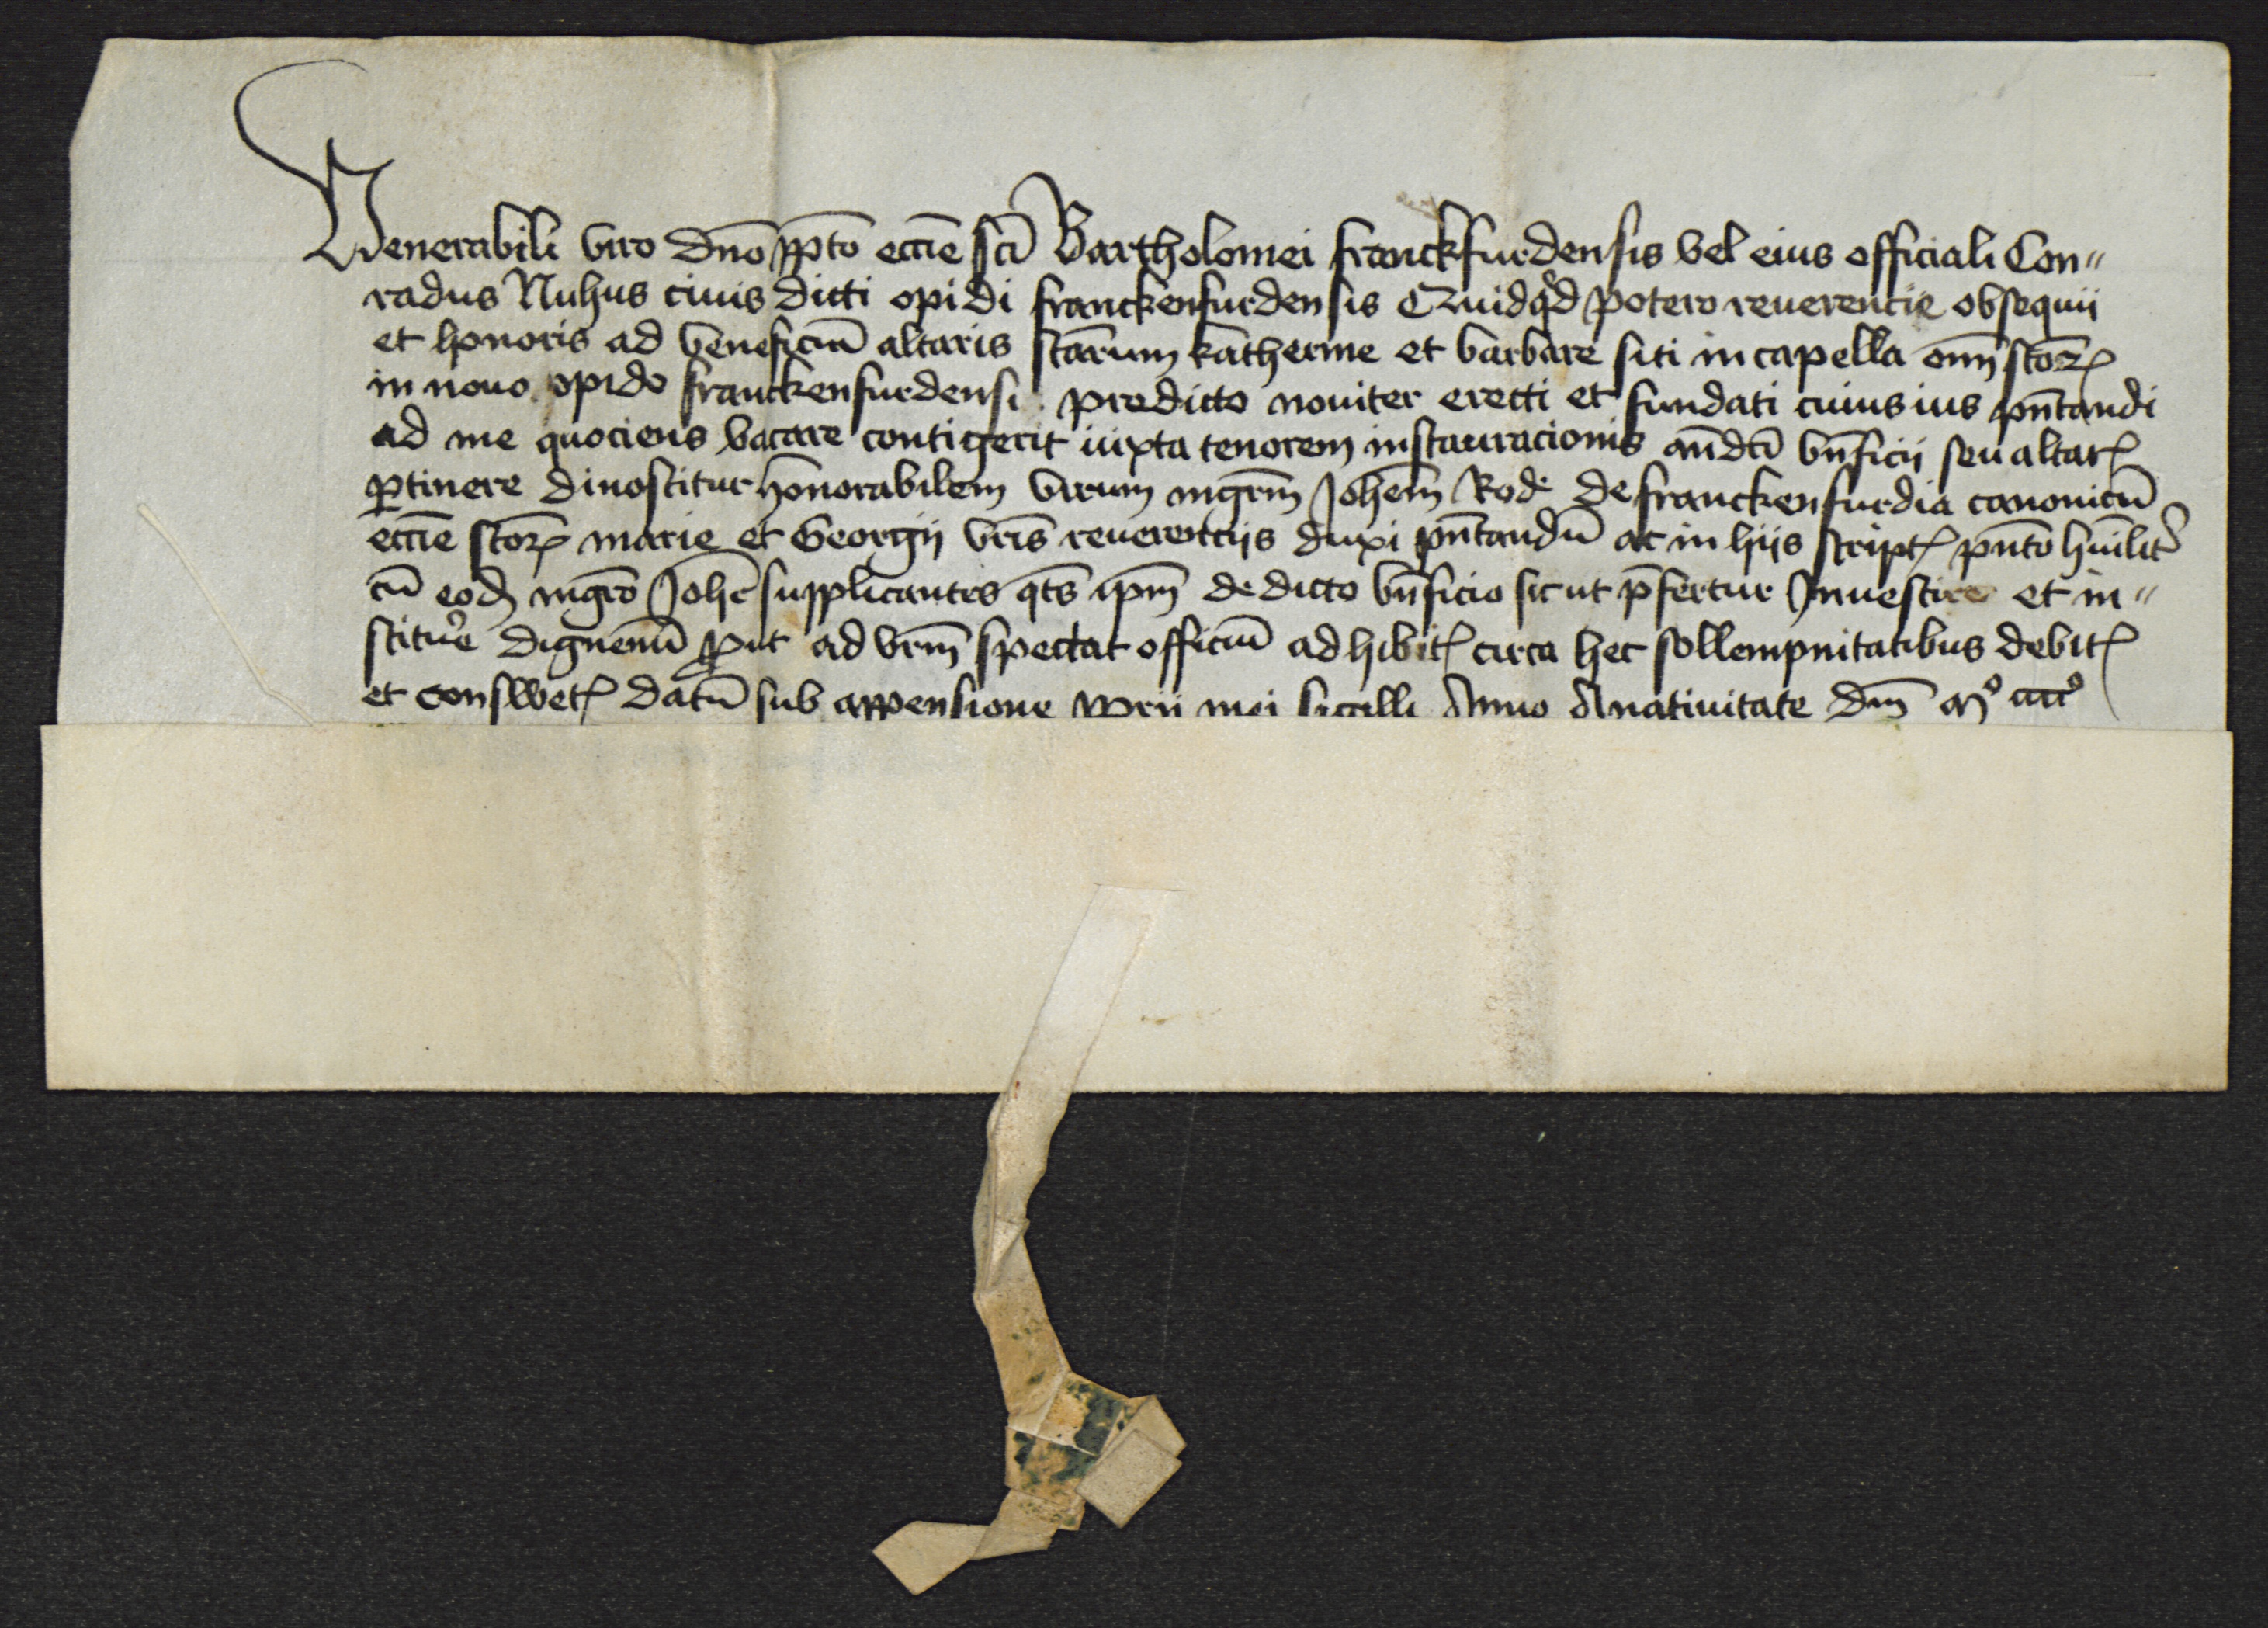 Venerabili viro dno ppto eccie sci Bartholomei franckfurdensis vel eius officiali Con〃
radus Nuhus ciuis dicti opidi franckenfurdensis Quidqd potero reuerencie obsequii
et honoris ad beneficiū altaris sc̄arum katherine et barbare siti in capella om̄ scōrꝫ
in nouo opido franckenfurdensi predicto nouiter erecti et fundati cuius ius pn̄tandi
ad me quociens vacare contigerit iuxta tenorem instauracionis an̄dc̄i bn̄ficii seu altarꝭ
ꝑtinere dinoscitur honorabilem virum mgrm̄ Johem̄ Rode de franckenfurdia canonicū
eccie scōrꝫ marie et Georgii vr̄is reuerentciis duxi pn̄tandū ac in hiis scriptꝭ pn̄to hūilit͛
cū eodꝫ mgr̄o Joh̄e supplicantes qt̄s ip̄m de dicto bn̄ficio sicut p̄fertur Inuestire et in〃
stitu͛e dignemī ꝓut ad vr̄m spectat officiū adhibitꝭ circa hec sollempnitatibus debitꝭ
et conswetꝭ datū sub appensione pprii mei sigilli Anno A natiuitate dn̄i mº ccccº